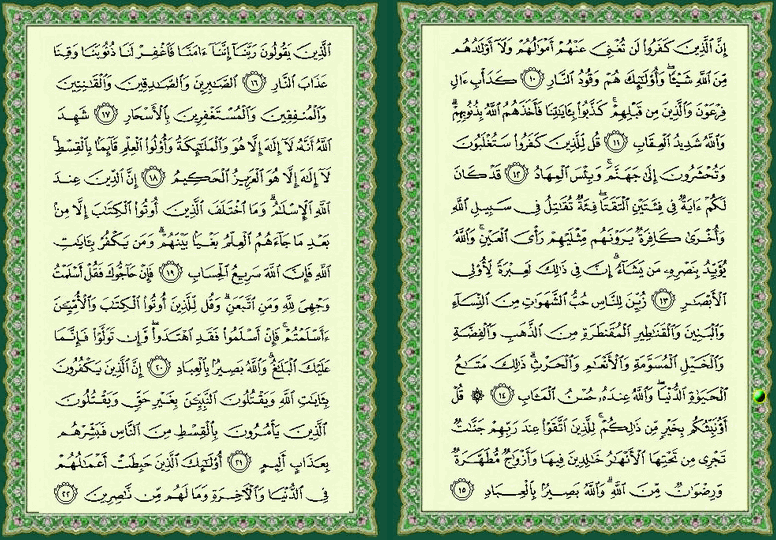 إِنَّ ٱلَّذِينَ كَفَرُوا۟ لَن تُغْنِىَ عَنْهُمْ أَمْوَٰلُهُمْ وَلَآ أَوْلَـٰدُهُم
مِّنَ ٱللَّهِ شَيْـًٔا ۖ وَأُو۟لَـٰٓئِكَ هُمْ وَقُودُ ٱلنَّارِ ١٠ كَدَأْبِ ءَالِ
فِرْعَوْنَ وَٱلَّذِينَ مِن قَبْلِهِمْ ۚ كَذَّبُوا۟ بِـَٔايَـٰتِنَا فَأَخَذَهُمُ ٱللَّهُ بِذُنُوبِهِمْ ۗ
وَٱللَّهُ شَدِيدُ ٱلْعِقَابِ ١١ قُل لِّلَّذِينَ كَفَرُوا۟ سَتُغْلَبُونَ
وَتُحْشَرُونَ إِلَىٰ جَهَنَّمَ ۚ وَبِئْسَ ٱلْمِهَادُ ١٢ قَدْ كَانَ
لَكُمْ ءَايَةٌ فِى فِئَتَيْنِ ٱلْتَقَتَا ۖ فِئَةٌ تُقَـٰتِلُ فِى سَبِيلِ ٱللَّهِ
وَأُخْرَىٰ كَافِرَةٌ يَرَوْنَهُم مِّثْلَيْهِمْ رَأْىَ ٱلْعَيْنِ ۚ وَٱللَّهُ
يُؤَيِّدُ بِنَصْرِهِۦ مَن يَشَآءُ ۗ إِنَّ فِى ذَٰلِكَ لَعِبْرَةً لِّأُو۟لِى
ٱلْأَبْصَـٰرِ ١٣ زُيِّنَ لِلنَّاسِ حُبُّ ٱلشَّهَوَٰتِ مِنَ ٱلنِّسَآءِ
وَٱلْبَنِينَ وَٱلْقَنَـٰطِيرِ ٱلْمُقَنطَرَةِ مِنَ ٱلذَّهَبِ وَٱلْفِضَّةِ
وَٱلْخَيْلِ ٱلْمُسَوَّمَةِ وَٱلْأَنْعَـٰمِ وَٱلْحَرْثِ ۗ ذَٰلِكَ مَتَـٰعُ
ٱلْحَيَوٰةِ ٱلدُّنْيَا ۖ وَٱللَّهُ عِندَهُۥ حُسْنُ ٱلْمَـَٔابِ ١٤ ۞ قُلْ
أَؤُنَبِّئُكُم بِخَيْرٍ مِّن ذَٰلِكُمْ ۚ لِلَّذِينَ ٱتَّقَوْا۟ عِندَ رَبِّهِمْ جَنَّـٰتٌ
تَجْرِى مِن تَحْتِهَا ٱلْأَنْهَـٰرُ خَـٰلِدِينَ فِيهَا وَأَزْوَٰجٌ مُّطَهَّرَةٌ
وَرِضْوَٰنٌ مِّنَ ٱللَّهِ ۗ وَٱللَّهُ بَصِيرٌۢ بِٱلْعِبَادِ ١٥
ٱلَّذِينَ يَقُولُونَ رَبَّنَآ إِنَّنَآ ءَامَنَّا فَٱغْفِرْ لَنَا ذُنُوبَنَا وَقِنَا
عَذَابَ ٱلنَّارِ ١٦ ٱلصَّـٰبِرِينَ وَٱلصَّـٰدِقِينَ وَٱلْقَـٰنِتِينَ
وَٱلْمُنفِقِينَ وَٱلْمُسْتَغْفِرِينَ بِٱلْأَسْحَارِ ١٧ شَهِدَ
ٱللَّهُ أَنَّهُۥ لَآ إِلَـٰهَ إِلَّا هُوَ وَٱلْمَلَـٰٓئِكَةُ وَأُو۟لُوا۟ ٱلْعِلْمِ قَآئِمًۢا بِٱلْقِسْطِ ۚ
لَآ إِلَـٰهَ إِلَّا هُوَ ٱلْعَزِيزُ ٱلْحَكِيمُ ١٨ إِنَّ ٱلدِّينَ عِندَ
ٱللَّهِ ٱلْإِسْلَـٰمُ ۗ وَمَا ٱخْتَلَفَ ٱلَّذِينَ أُوتُوا۟ ٱلْكِتَـٰبَ إِلَّا مِنۢ
بَعْدِ مَا جَآءَهُمُ ٱلْعِلْمُ بَغْيًۢا بَيْنَهُمْ ۗ وَمَن يَكْفُرْ بِـَٔايَـٰتِ
ٱللَّهِ فَإِنَّ ٱللَّهَ سَرِيعُ ٱلْحِسَابِ ١٩ فَإِنْ حَآجُّوكَ فَقُلْ أَسْلَمْتُ
وَجْهِىَ لِلَّهِ وَمَنِ ٱتَّبَعَنِ ۗ وَقُل لِّلَّذِينَ أُوتُوا۟ ٱلْكِتَـٰبَ وَٱلْأُمِّيِّـۧنَ
ءَأَسْلَمْتُمْ ۚ فَإِنْ أَسْلَمُوا۟ فَقَدِ ٱهْتَدَوا۟ ۖ وَّإِن تَوَلَّوْا۟ فَإِنَّمَا
عَلَيْكَ ٱلْبَلَـٰغُ ۗ وَٱللَّهُ بَصِيرٌۢ بِٱلْعِبَادِ ٢٠ إِنَّ ٱلَّذِينَ يَكْفُرُونَ
بِـَٔايَـٰتِ ٱللَّهِ وَيَقْتُلُونَ ٱلنَّبِيِّـۧنَ بِغَيْرِ حَقٍّ وَيَقْتُلُونَ
ٱلَّذِينَ يَأْمُرُونَ بِٱلْقِسْطِ مِنَ ٱلنَّاسِ فَبَشِّرْهُم
بِعَذَابٍ أَلِيمٍ ٢١ أُو۟لَـٰٓئِكَ ٱلَّذِينَ حَبِطَتْ أَعْمَـٰلُهُمْ
فِى ٱلدُّنْيَا وَٱلْـَٔاخِرَةِ وَمَا لَهُم مِّن نَّـٰصِرِينَ ٢٢